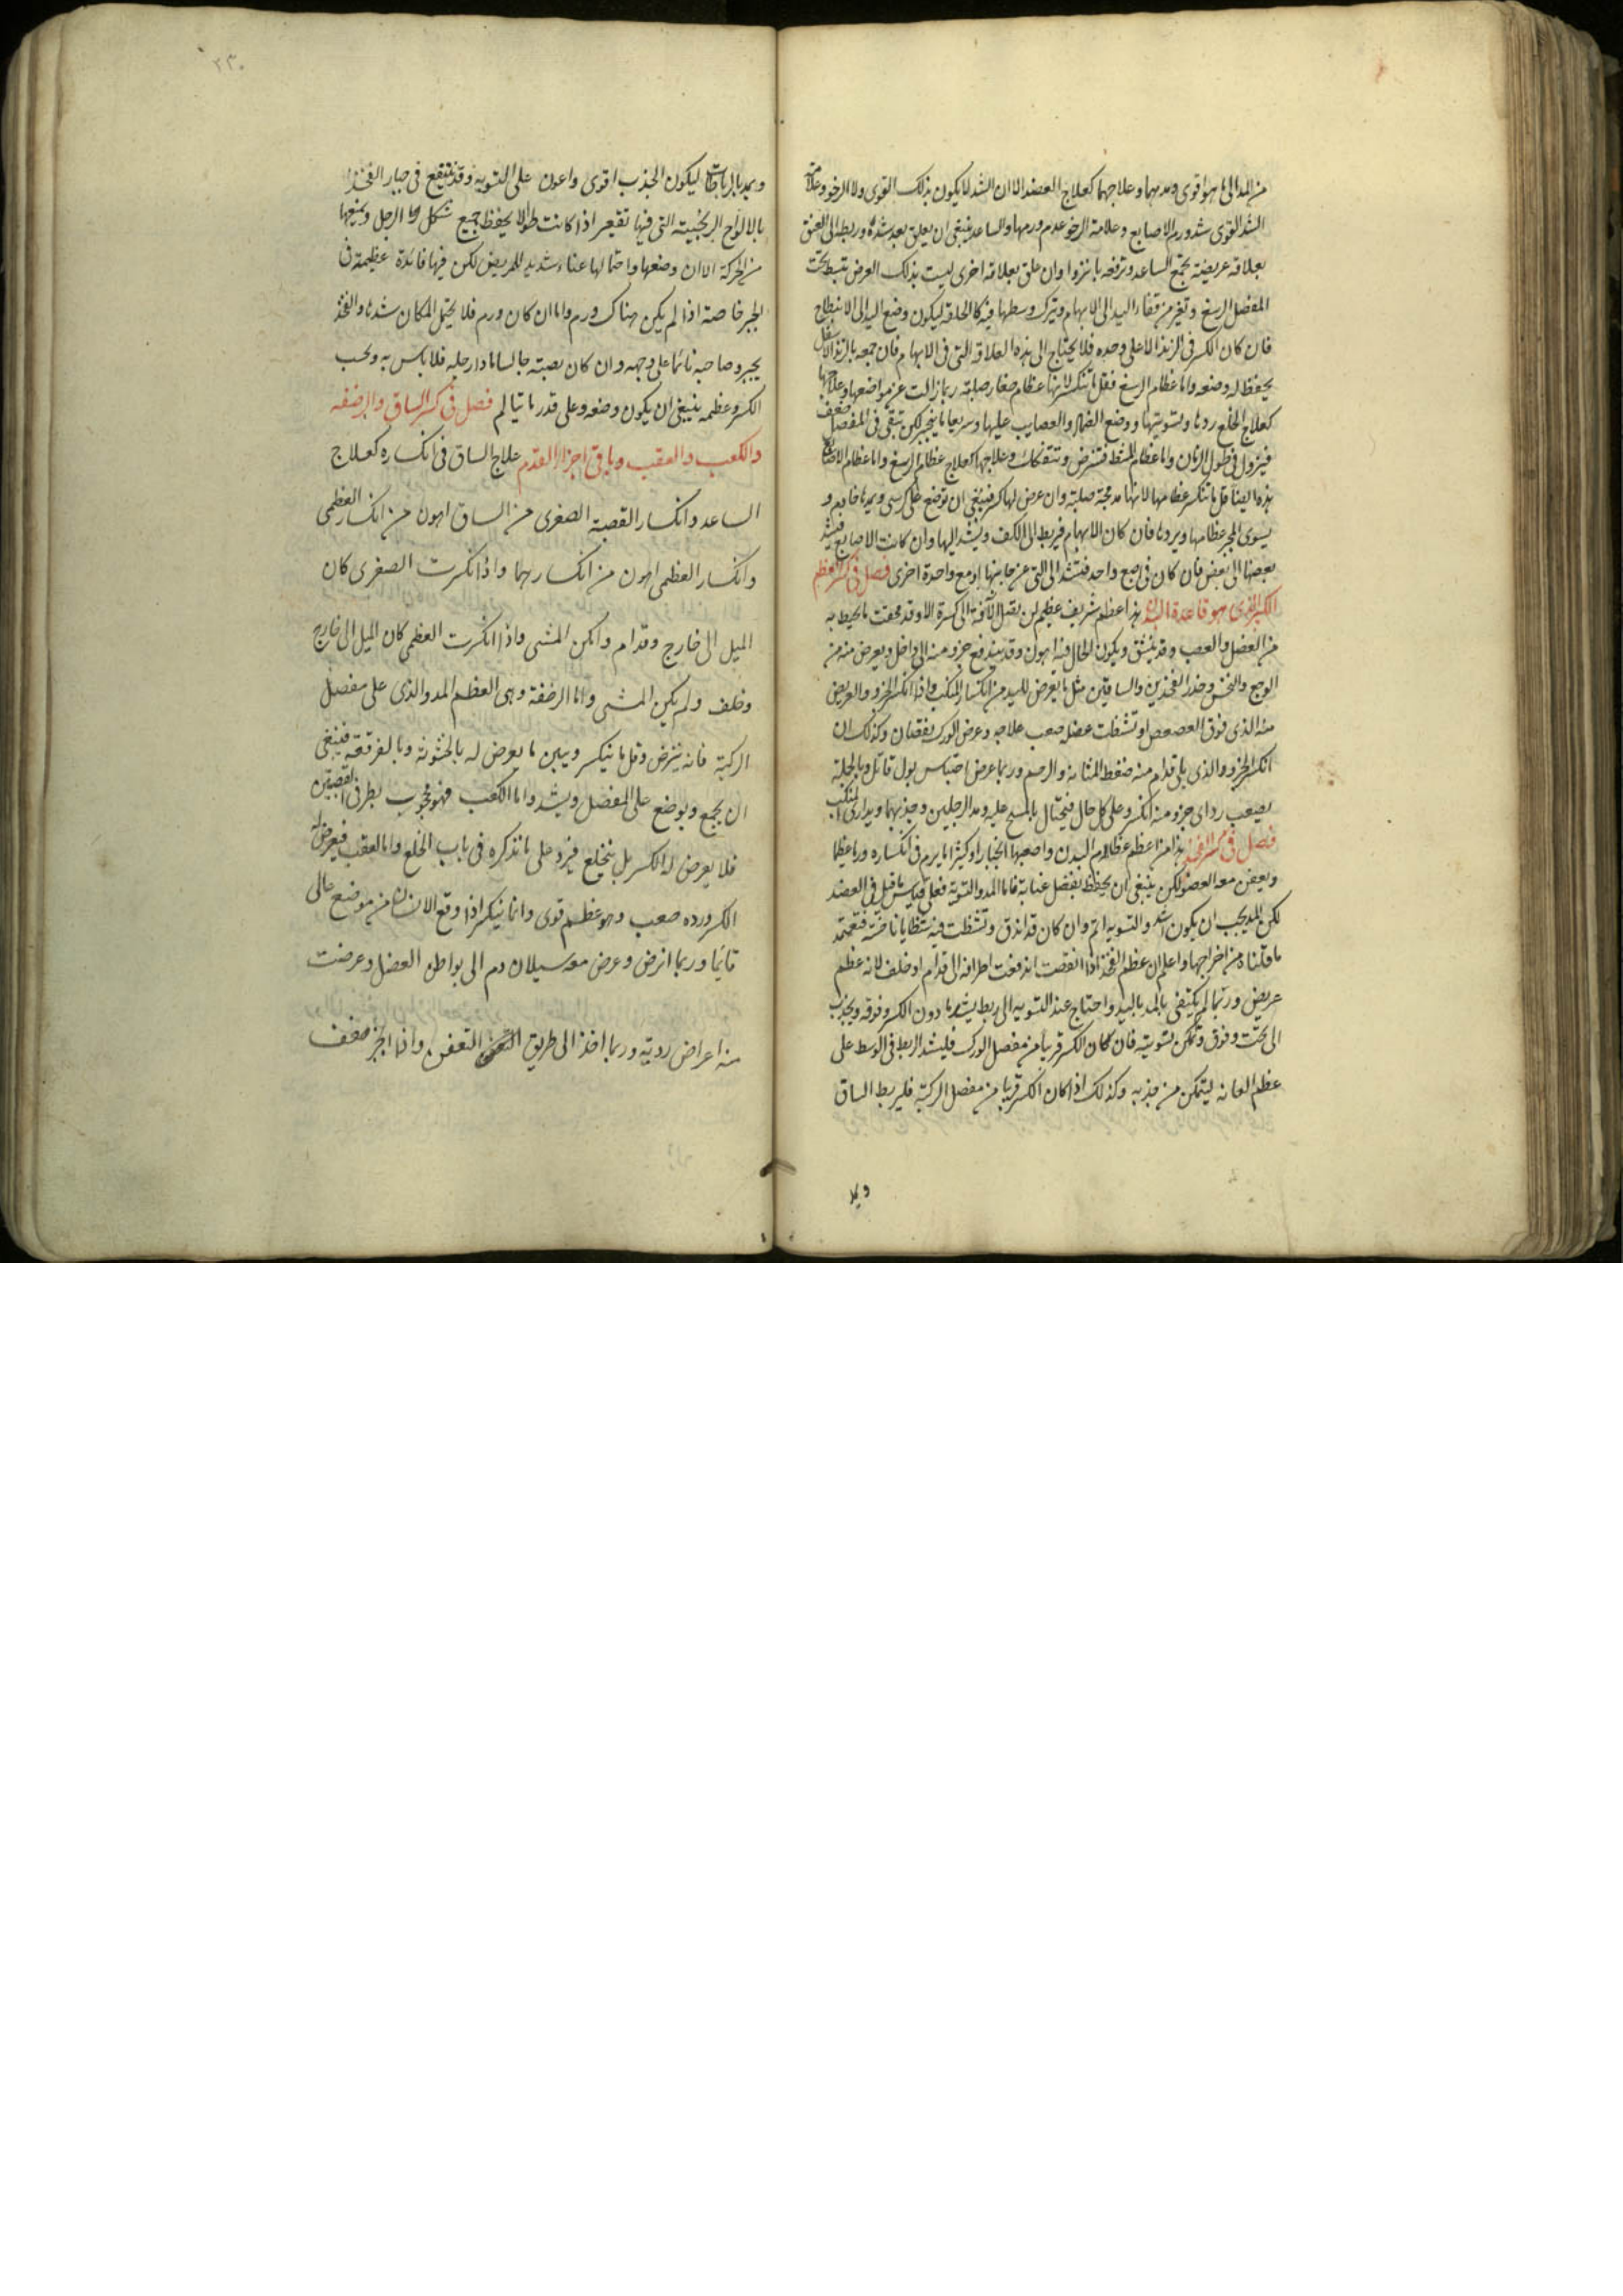 من المد الى ما هو اقوى ومدهما وعلاجهما كعلاج العضد الا ان الشد لا يكون بذلك القوى ولا الرخو وعلامة
الشد القوى شدة ورم الاصابع وعلامة الرخو عدم ورمها والساعد ينبغى ان يعلق بعد شده وربط الى العنق
بعلاقة عريضة تجمع الساعد وترفعه وان علق بعلاقة اخرى ليست بذلك العرض تبسط تحت
المفصل الرسغ وتغير من قفاء اليد الى الابهام ويترك وسطها فيه كالحلقة ليكون وضع اليد الى الانبطاح
فان كان الكسر فى الزند الاعلى وحده فلا يحتاج الى هذه العلاقة التى فى الابهام فان جمعه بالزند الاسفل
يحفظ له وضعه واما عظام الرسغ فقل ما تنكسر لانها عظام صغار صلبة ربما زالت عن مواضعها وعلاجها
كعلاج الخلع ردها وتسويتها ووضع الضماد والعصايب عليها وسريعا ما ينجبر لكن تبقى فى المفصل ضعف
فيزول فى طول الزمان واما عظام المشط فتنرض وتتفكك وعلاجها كعلاج عظام الرسغ واما عظام الاصابع
هذه ايضا قل ما تنكسر عظامها لانها مدمجة صلبة وان عرض لها كسر فينبغى ان توضع على كرسى ويمدها خادم و
يسوى المجبر عظامها ويردها فان كان الابهام فيربط الى الكف ويشد اليها وان كانت الاصابع فيشد
بعضها الى بعض فان كان فى اصبع واحد فتشد الى التى عن جانبها او مع واحدة اخرى فصل فى كسر العظم
الكبير الذى هو قاعدة البدن هذا عظم شريف عظيم لن يصل الآفة الى كسره الا وقد لحقت ما يحيط به
من العضل والعصب وقد ينشق ويكون الحال فيه اهون وقد يندفع جزو منه الى داخل ويعرض منه من
الوجع والنخس وخدر الفخذين والساقين مثل ما يعرض لليد من انكسار المنكب واذا انكسر الجزو والعريض
منه الذى فوق العصعص او تشظت عضله صعب علاجه وعرض الورك نقصان وكذلك ان
انكسر الجزو والذى يلى قدام منه ضغط المثانة والرحم وربما عرض احتباس بول قاتل وبالجملة
يصعب رد اى جزو منه انكسر وعلى كل حال فيحتال بالمسح عليه ومد الرجلين وجذبهما ويدارى المنكب
فصل فى كسر الفخذ هذا من اعظم عظام البدن واصعبها انجبارا وكثيرا ما يرم فى انكساره ورما عظيما
ويعفن معه العضو لكن ينبغى ان يحفظ بفضل عناية فاما المد والتسوية فعلى قياس ما قيل فى العضد
لكن المد يجب ان يكون اشد والتسوية اتم وان كان قد اندق وتشظت فيه شظايا ناخسة فتعتمد
ما قلناه من اخراجها واعلم ان عظم الفخذ اذا انقصف اندفعت اطرافه الى قدام او خلف لانه عظم
عريض وربما لم يكتفى بالمد باليد واحتاج عند التسوية الى ربط يشد ما دون الكسر وفوقه ويجذب
الى تحت وفوق وتمكن تسويته فان كان الكسر قريبا من مفصل الورك فليشد الربط فى الوسط على
عظم العانة ليتمكن من جذبه وكذلك اذا كان الكسر قريبا من مفصل الركبة فليربط الساق
ويمد
٢٣٠
ويمد بالرباطات ليكون الجذب اقوى واعون على التسوية وقد ينتفع فى جبار الفخذ
بالالواح الخشبية التى فيها تقعير اذا كانت طوالا يحفظ جميع شكل الرجل ويمنعها
من الحركة الا ان وضعها واحتمالها عناء شديد للمريض لكن فيها فائدة عظيمة فى
الجبر خاصة اذا لم يكن هناك ورم واما ان كان ورم فلا يحتمل المكان شدها والفخذ
يجبر وصاحبه نائما على وجهه وان كان نصبته جالسا مادا رجليه فلا باس به وبحسب
الكسر وعظمه ينبغى ان يكون وضعه وعلى قدر ما يتالم فصل فى كسر الساق والرضفه
والكعب والعقب وباقى اجزاء القدم علاج الساق فى انكساره كعلاج
الساعد وانكسار القصبة الصغرى من الساق اهون من انكسار العظمى
وانكسار العظمى اهون من انكسارهما واذا انكسرت الصغرى كان
الميل الى خارج وقدام وامكن المشى واذا انكسرت العظمى كان الميل الى خارج
وخلف ولم يكن المشى واما الرضفة وهى العظم المدور الذى على مفصل
الركبة فانه ينرض وقل ما ينكسر ويبين ما يعرض له بالخشونة وبالفرقعة فينبغى
ان يجمع ويوضع على المفصل ويشد واما الكعب فهو محجوب بطرفى القصبتين
فلا يعرض له الكسر بل ينخلع فيرد على ما نذكره فى باب الخلع واما العقب فيعرض له
الكسر ورده صعب وهو عظم قوى وانما ينكسر اذا وقع الانسان من موضع عالى
قايما وربما انرض وعرض معه سيلان دم الى بواطن العضل وعرضت
منه اعراض ردية وربما اخذ الى طريق التعفن واذا انجبر ضعف